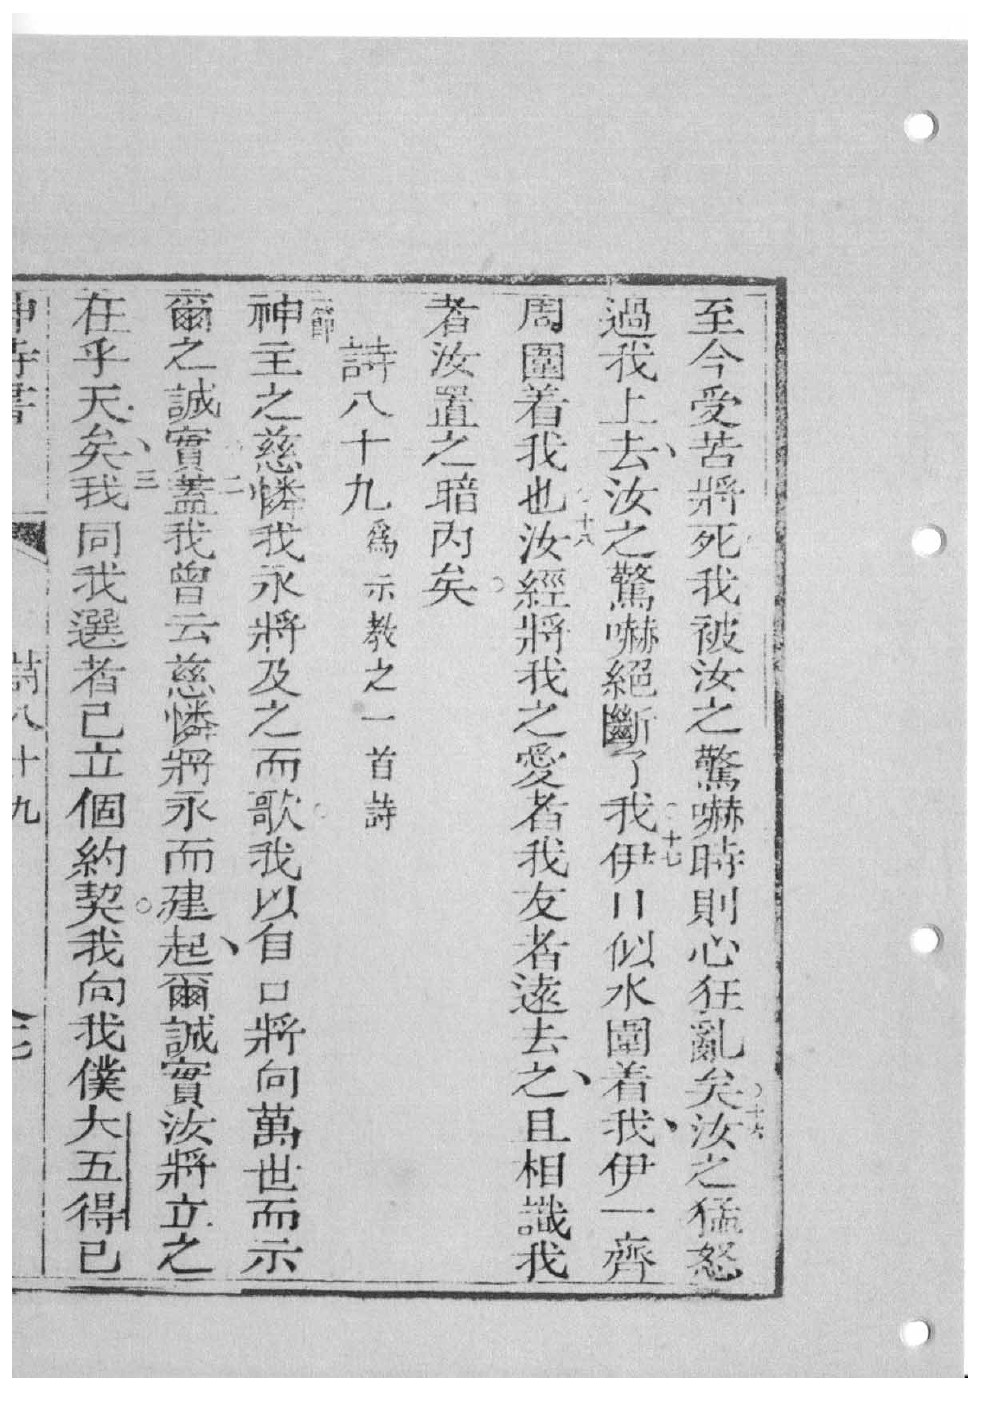 至今受苦將死我被汝之驚嚇時則心狂亂矣十六汝之猛怒
過我上去、汝之驚嚇絕斷了我十七伊日似水圍着我、伊一齊
周圍着我也十八汝經將我之愛者我友者遠去之、且相識我
者汝置之暗內矣○
詩八十九爲示教之一首詩
一節神主之慈憐我永將及之而歌○我以自口將向萬世而示
爾之誠實二蓋我曾云慈憐將永而建起、爾誠實汝將立之
在乎天矣、三我同我選者已立個約契○我向我僕大五得已
神詩書 詩八十九